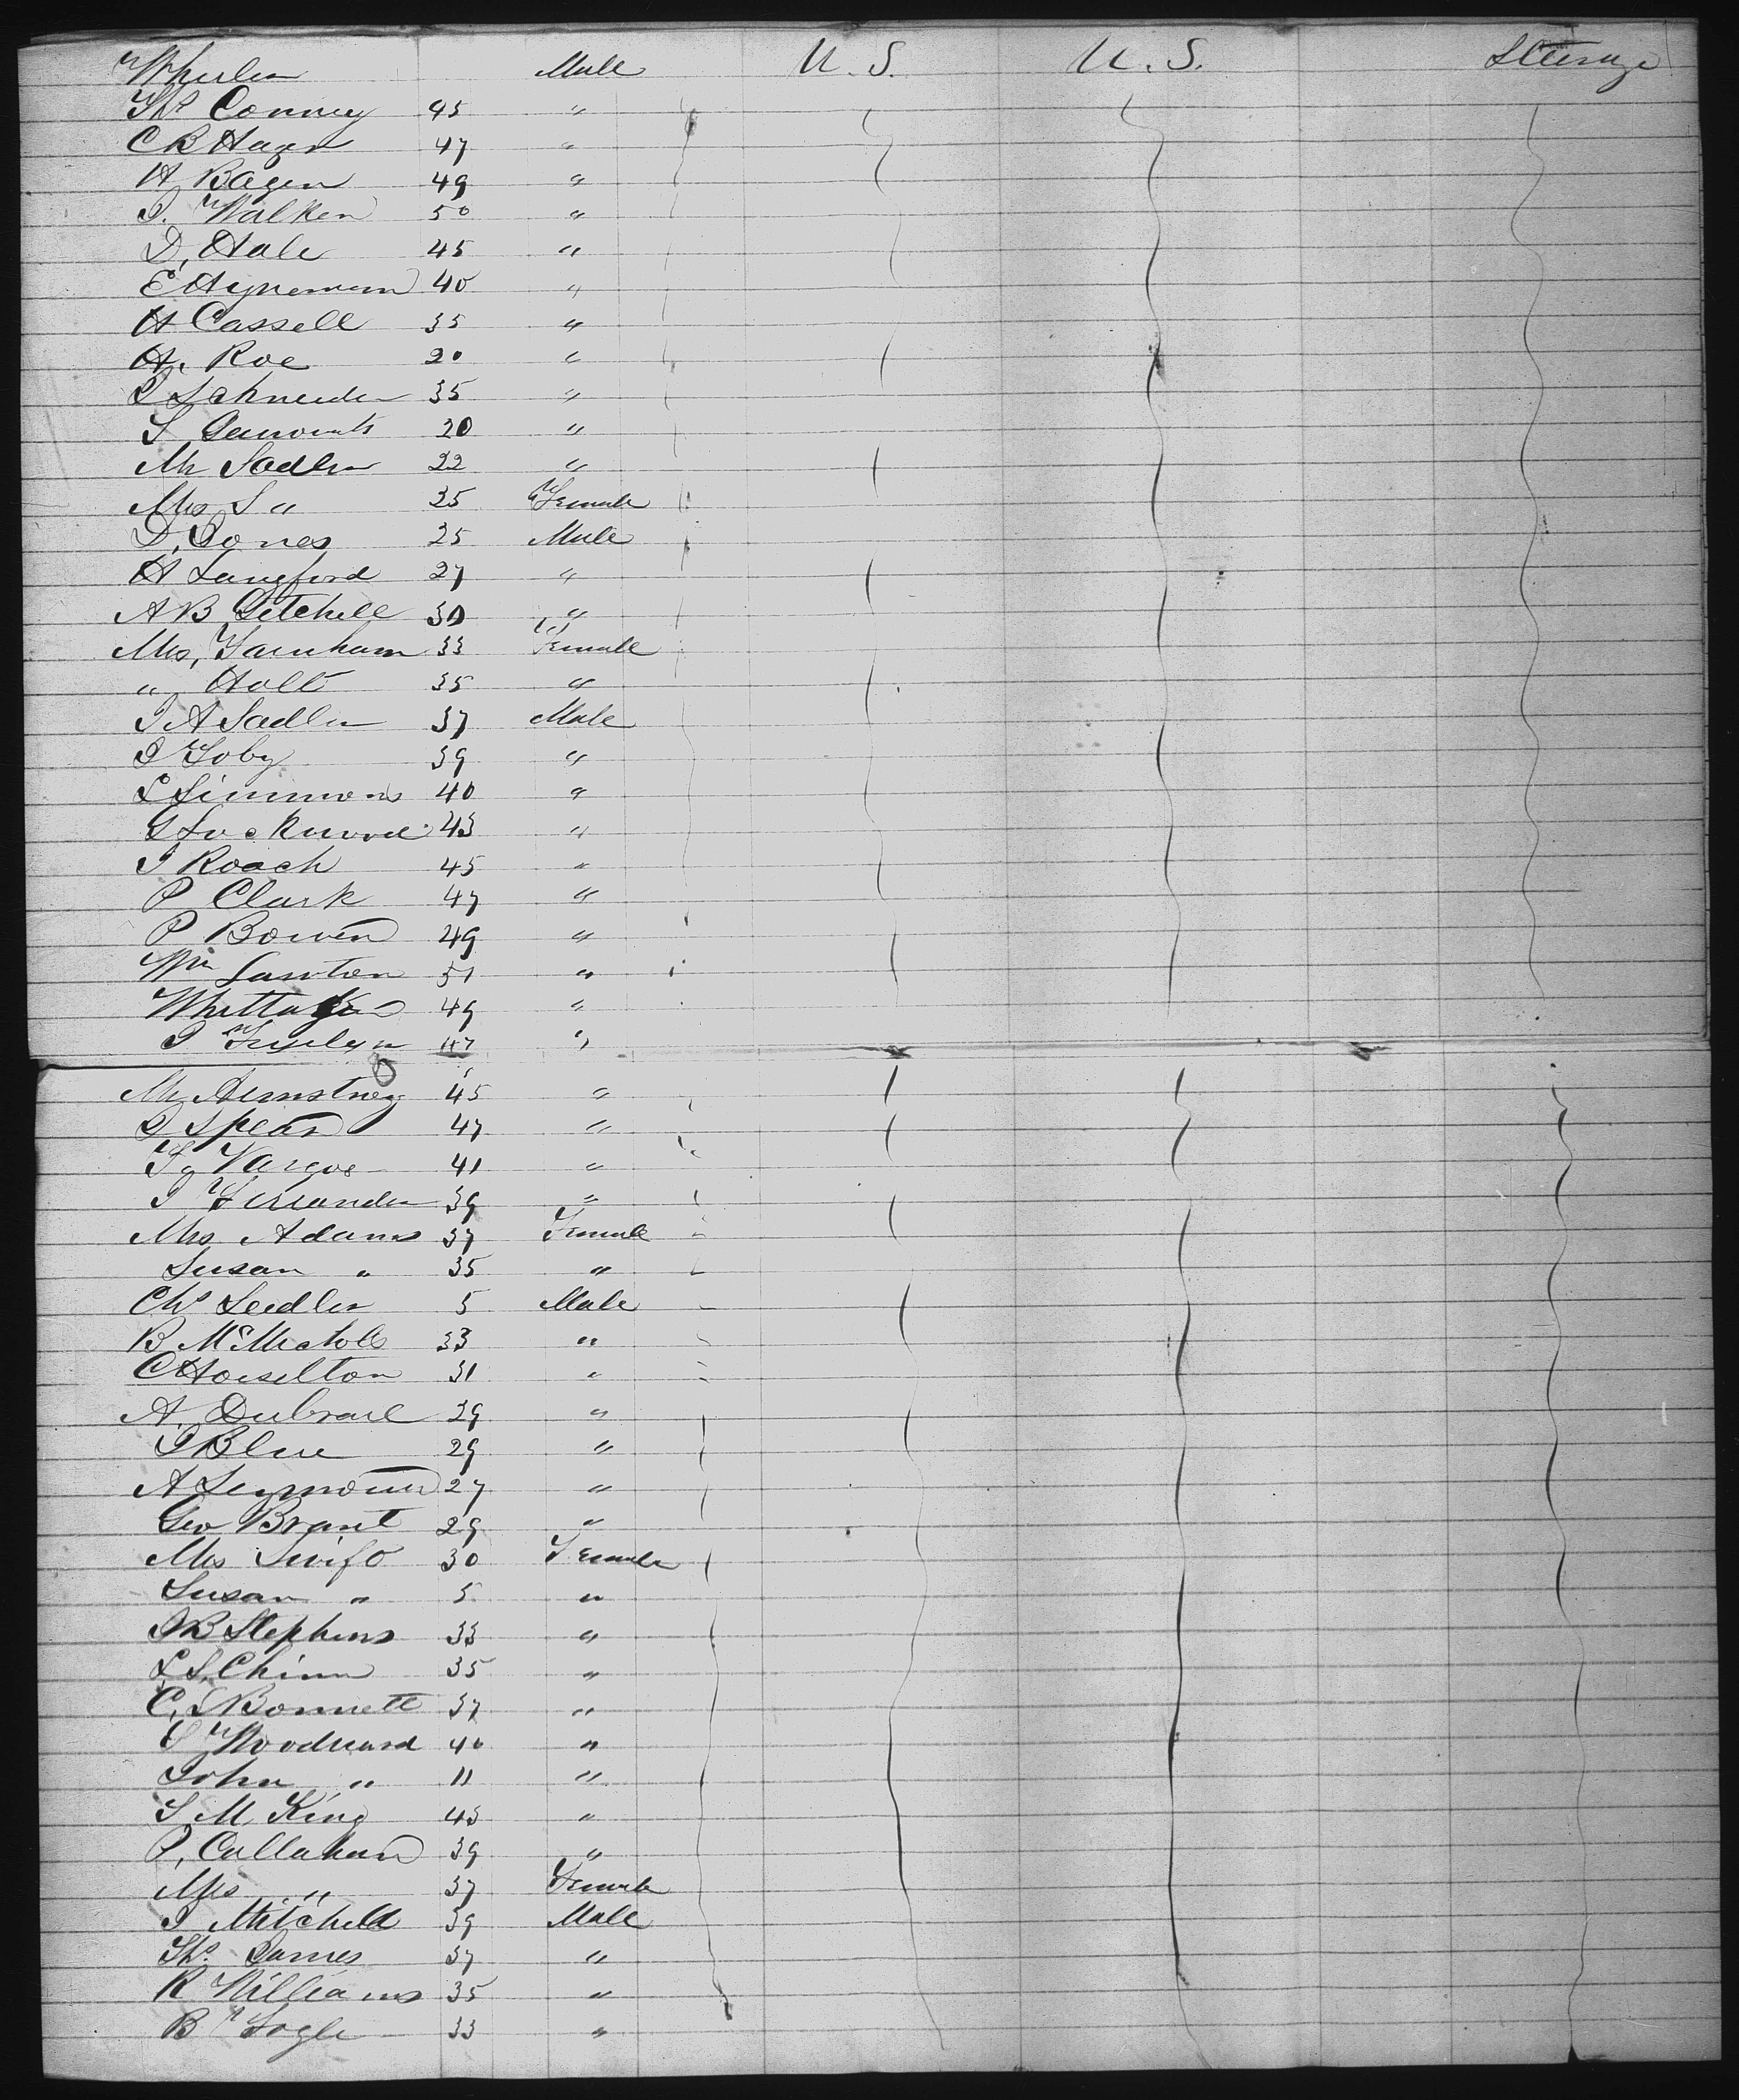 Wheeler Male U. S. U. S. Steerage
Ths Conney 45 "
C B Hager 47 "
H Bagen 49 "
J. Walker 50 "
D, Hale 45 "
E Hyneman 40 "
H Cassell 35 "
H. Roe 20 "
J Schneider 35 "
S 20 "
Mr Sadler 22 "
Mrs S " 25 Female
D, Jones 25 Male
H Langford 27 "
A B Getchell 30 "
Mrs, Farnham 33 Female
" Holt 35 "
J A Sadler 37 Male
J Toby 39 "
L Simmons 40 "
G Lockwood 43 "
J Roach 45 "
P Clark 47 "
P Bowen 49 "
Wm Lawton 51 "
Whittaker 49 "
J 47 "
Mr Armstrong 45 "
J Spear 47 "
Vargos 41 "
J 39 "
Mrs Adams 37 Female
Susan " 35 "
Chs Seidler 5 Male
B McNichols 33 "
C Hoiselton 31 "
A. 29 "
J Blue 29 "
A Seymour 27 "
Geo Brant 29 "
Mrs Swift 30 Female
Susan " 5 "
J B Stephens 33 "
L S. Chinn 35 "
C, S Bonnett 37 "
S Woodward 40 "
John " 11 "
S M King 43 "
P, Callahan 39 "
Mrs " 37 Female
J Mitchell 39 Male
Ths. James 37 "
R Williams 35 "
B Fogle 33 "